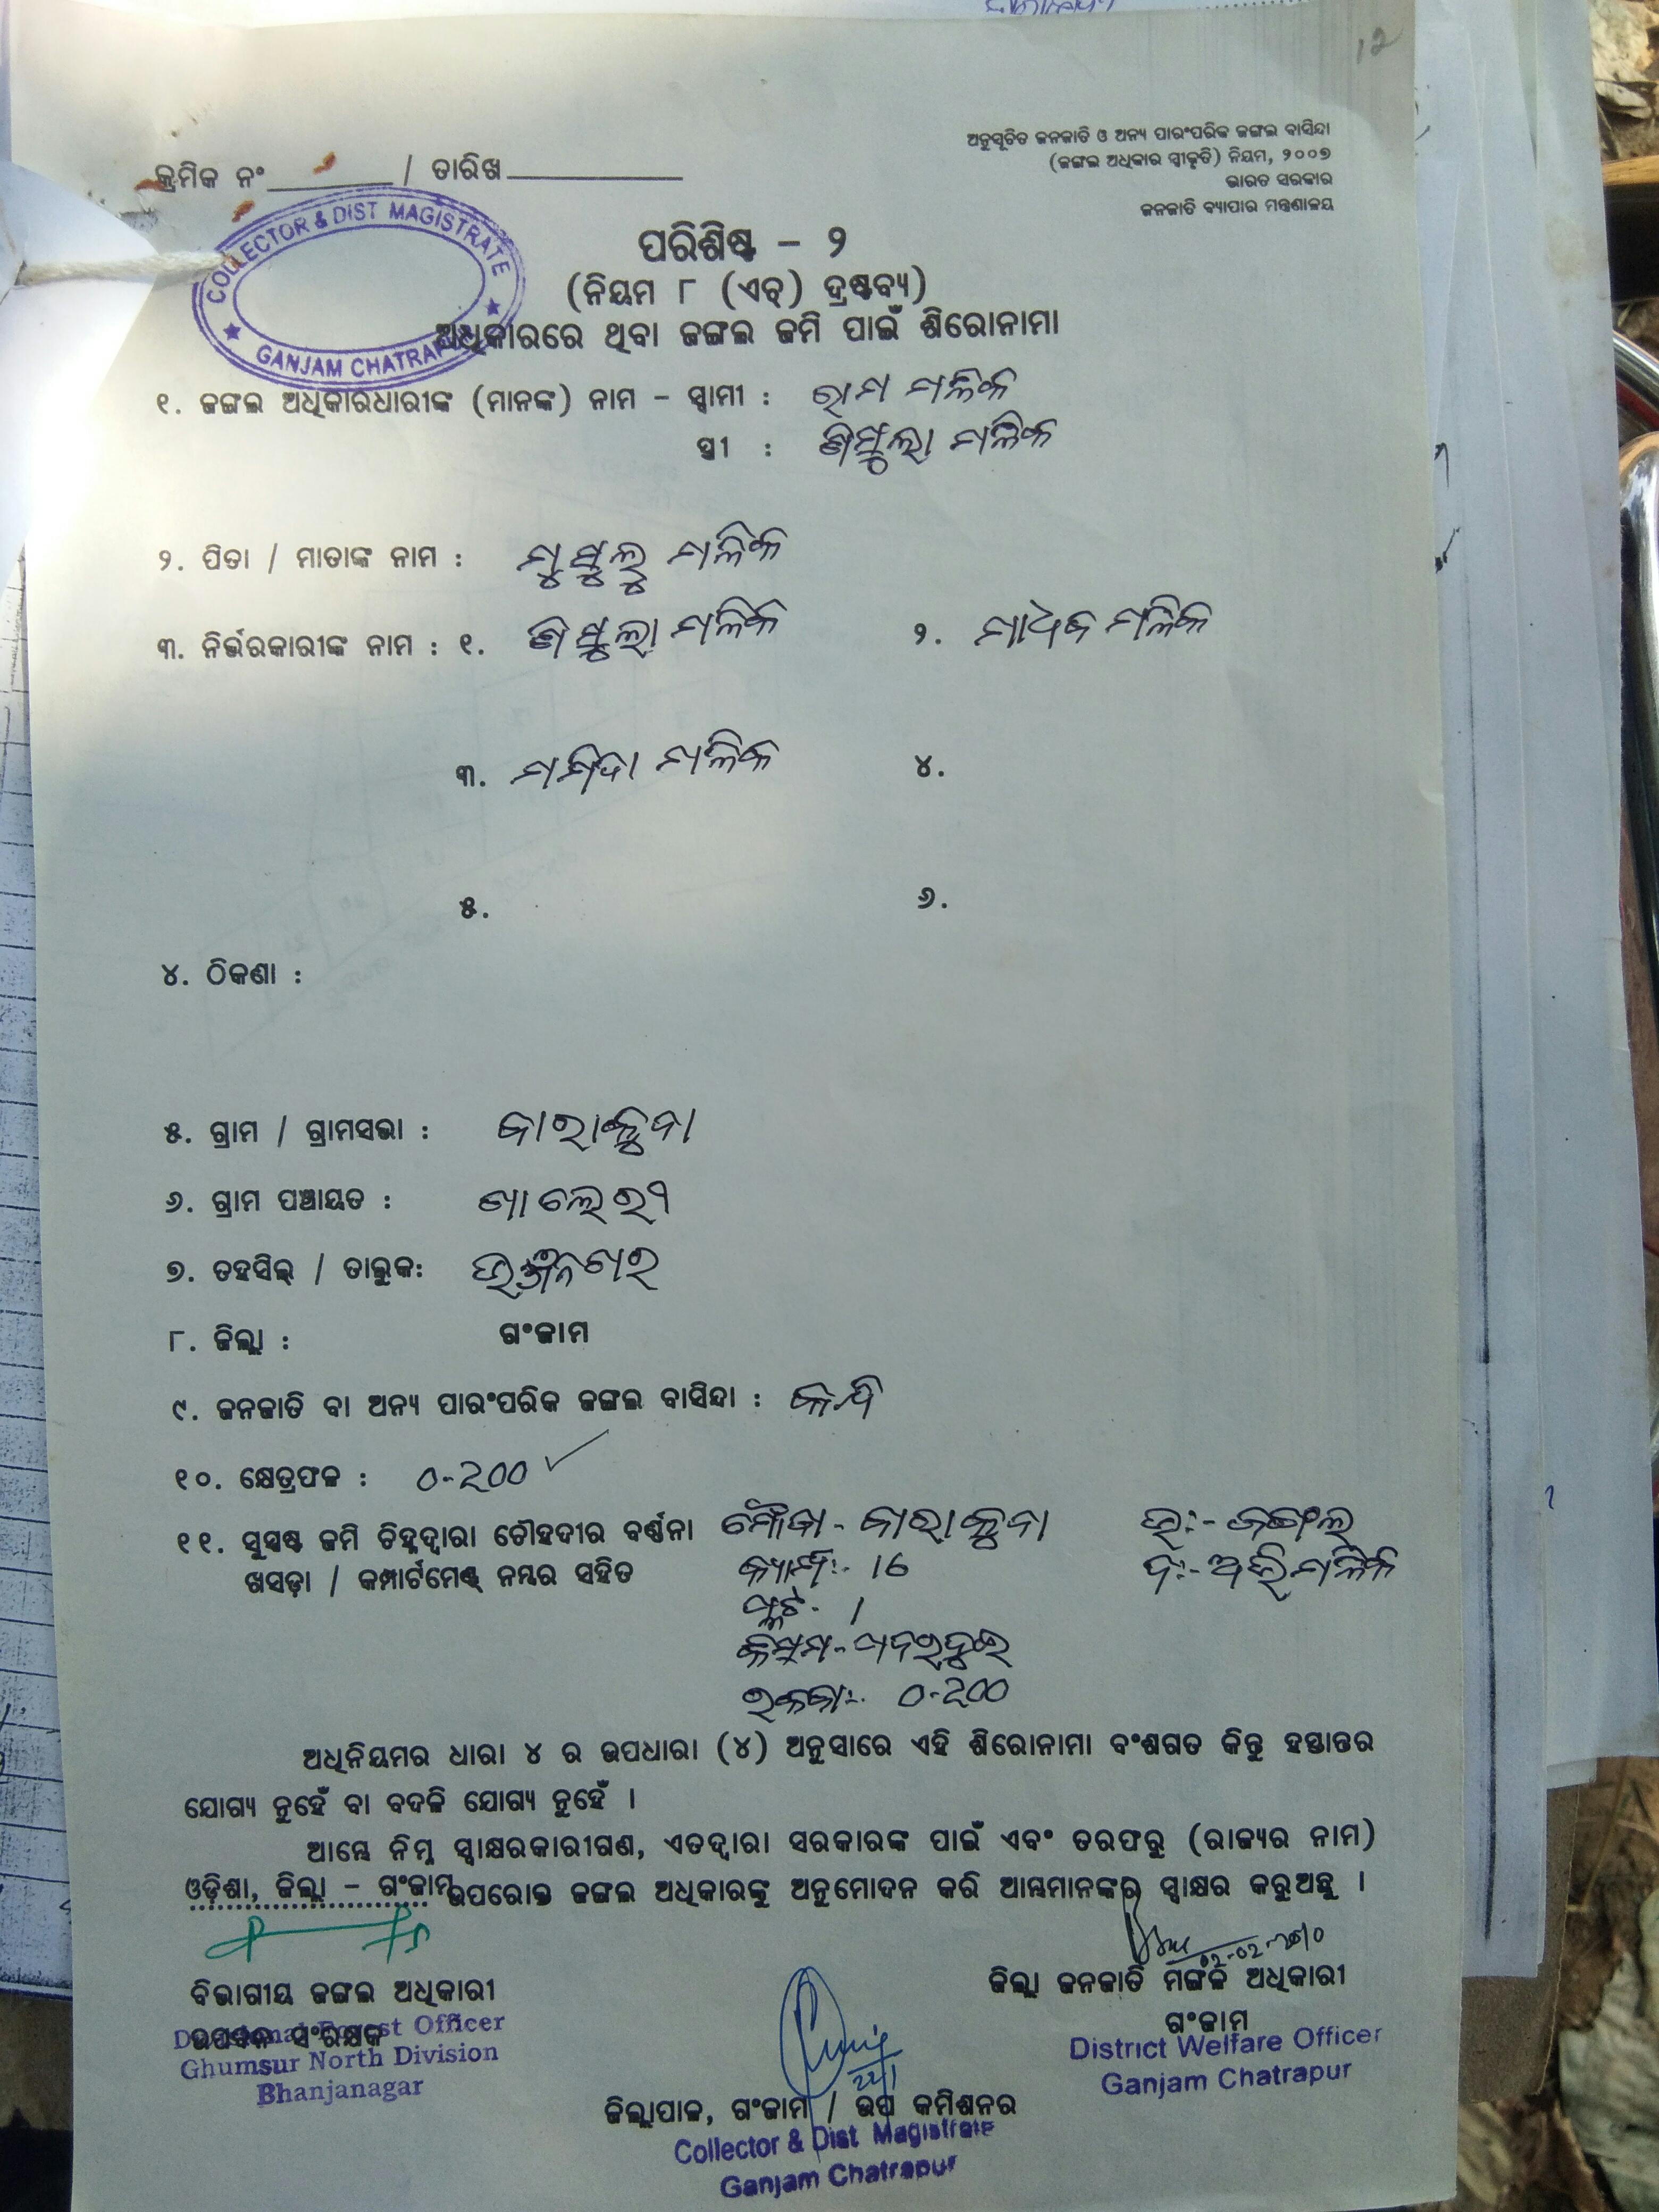 12
ଅନୁସୂଚିତ ଜନଜାତି ଓ ଅନ୍ୟ ପାରଂପରିକ ଜଙ୍ଗଲ ବାସିନ୍ଦା
(ଜଙ୍ଗଲ ଅଧିକାର ସ୍ୱୀକୃତି) ନିୟମ, ୨୦୦୭
ଭାରତ ସରକାର
ଜନଜାତି ବ୍ୟାପାର ମନ୍ତ୍ରଣାଳୟ
କ୍ରମିକ ନଂ / ତାରିଖ
COLLECTOR & DIST MAGISTRATE
GANJAM CHATRAPUR
ପରିଶିଷ୍ଟ – ୨
(ନିୟମ ୮ (ଏଚ୍) ଦ୍ରଷ୍ଟବ୍ୟ)
ଅଧିକାରରେ ଥିବା ଜଙ୍ଗଲ ଜମି ପାଇଁ ଶିରୋନାମା
୧. ଜଙ୍ଗଲ ଅଧିକାରଧାରୀଙ୍କ (ମାନଙ୍କ) ନାମ – ସ୍ୱାମୀ : ରାମ ମଳିକ
ସ୍ତ୍ରୀ : ମଳିକ
୨. ପିତା / ମାତାଙ୍କ ନାମ : ମଳିକ
୩. ନିର୍ଭରକାରୀଙ୍କ ନାମ : ୧. ମଳିକ ୨. ମାଧବ ମଳିକ
୩. ମଳିକ ୪.
୫. ୬.
୪. ଠିକଣା :
୫. ଗ୍ରାମ / ଗ୍ରାମସଭା : ବାରାକୁବା
୬. ଗ୍ରାମ ପଞ୍ଚାୟତ :
୭. ତହସିଲ୍ / ତାଲୁକ: ଭଞ୍ଜନଗର
୮. ଜିଲ୍ଲା : ଗଂଜାମ
୯. ଜନଜାତି ବା ଅନ୍ୟ ପାରଂପରିକ ଜଙ୍ଗଲ ବାସିନ୍ଦା : କନ୍ଧ
୧୦. କ୍ଷେତ୍ରଫଳ : 0-200
୧୧. ସୁସ୍ପଷ୍ଟ ଜମି ଚିହ୍ନଦ୍ୱାରା ଚୌହଦୀର ବର୍ଣ୍ଣନା ମୌଜା - ବାରାକୁବା ଉ:- ଜଙ୍ଗଲ
ଖସଡ଼ା / କମ୍ପାର୍ଟମେଣ୍ଟ୍ ନମ୍ବର ସହିତ 16 ଦ:- ମଳିକ
ପ୍ଲଟ - 1
କିସମ -
ରକବା:- 0-200
ଅଧିନିୟମର ଧାରା ୪ ର ଉପଧାରା (୪) ଅନୁସାରେ ଏହି ଶିରୋନାମା ବଂଶଗତ କିନ୍ତୁ ହସ୍ତାନ୍ତର
ଯୋଗ୍ୟ ନୁହେଁ ବା ବଦଳି ଯୋଗ୍ୟ ନୁହେଁ ।
ଆମ୍ଭେ ନିମ୍ନ ସ୍ୱାକ୍ଷରକାରୀଗଣ, ଏତଦ୍ୱାରା ସରକାରଙ୍କ ପାଇଁ ଏବଂ ତରଫରୁ (ରାଜ୍ୟର ନାମ)
ଓଡ଼ିଶା, ଜିଲ୍ଲା – ଗଂଜାମ ଉପରୋକ୍ତ ଜଙ୍ଗଲ ଅଧିକାରକୁ ଅନୁମୋଦନ କରି ଆମ୍ଭମାନଙ୍କର ସ୍ୱାକ୍ଷର କରୁଅଛୁ ।
ବିଭାଗୀୟ ଜଙ୍ଗଲ ଅଧିକାରୀ
ଉପବନ ସଂରକ୍ଷକ
Divisional Forest Officer
Ghumsur North Division
Bhanjanagar
ଜିଲ୍ଲା ଜନଜାତି ମଙ୍ଗଳ ଅଧିକାରୀ
ଗଂଜାମ
District Welfare Officer
Ganjam Chatrapur
22/1
ଜିଲ୍ଲାପାଳ, ଗଂଜାମ / ଉପ କମିଶନର
Collector & Dist Magistrate
Ganjam Chatrapur